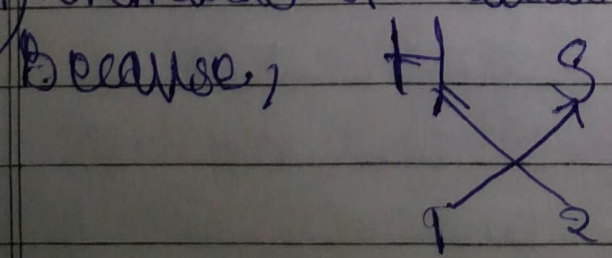 Because, H S
1 2